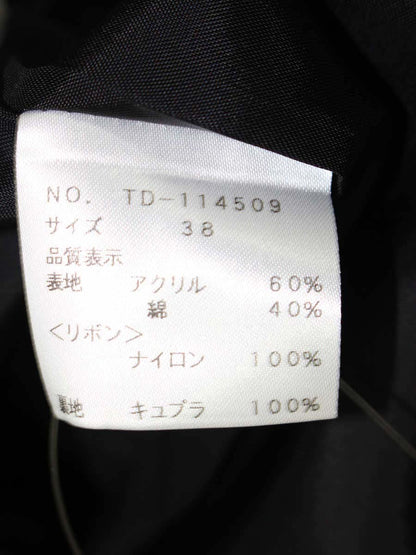 NO. TD-114509
サイズ 38
品質表示
表地 アクリル 60%
綿 40%
<リボン>
ナイロン 100%
裏地 キュプラ 100%